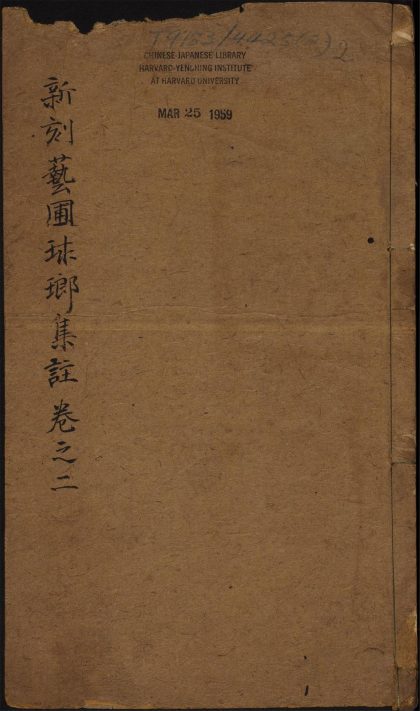 T9153/4425(2)2
CHINESE-JAPANESE LIBRARY
HARVARD-YENCHING INSTITUTE
AT HARVARD UNIVERSITY
MAR 25 1959
新刻藝圃球瑯集註 卷之二